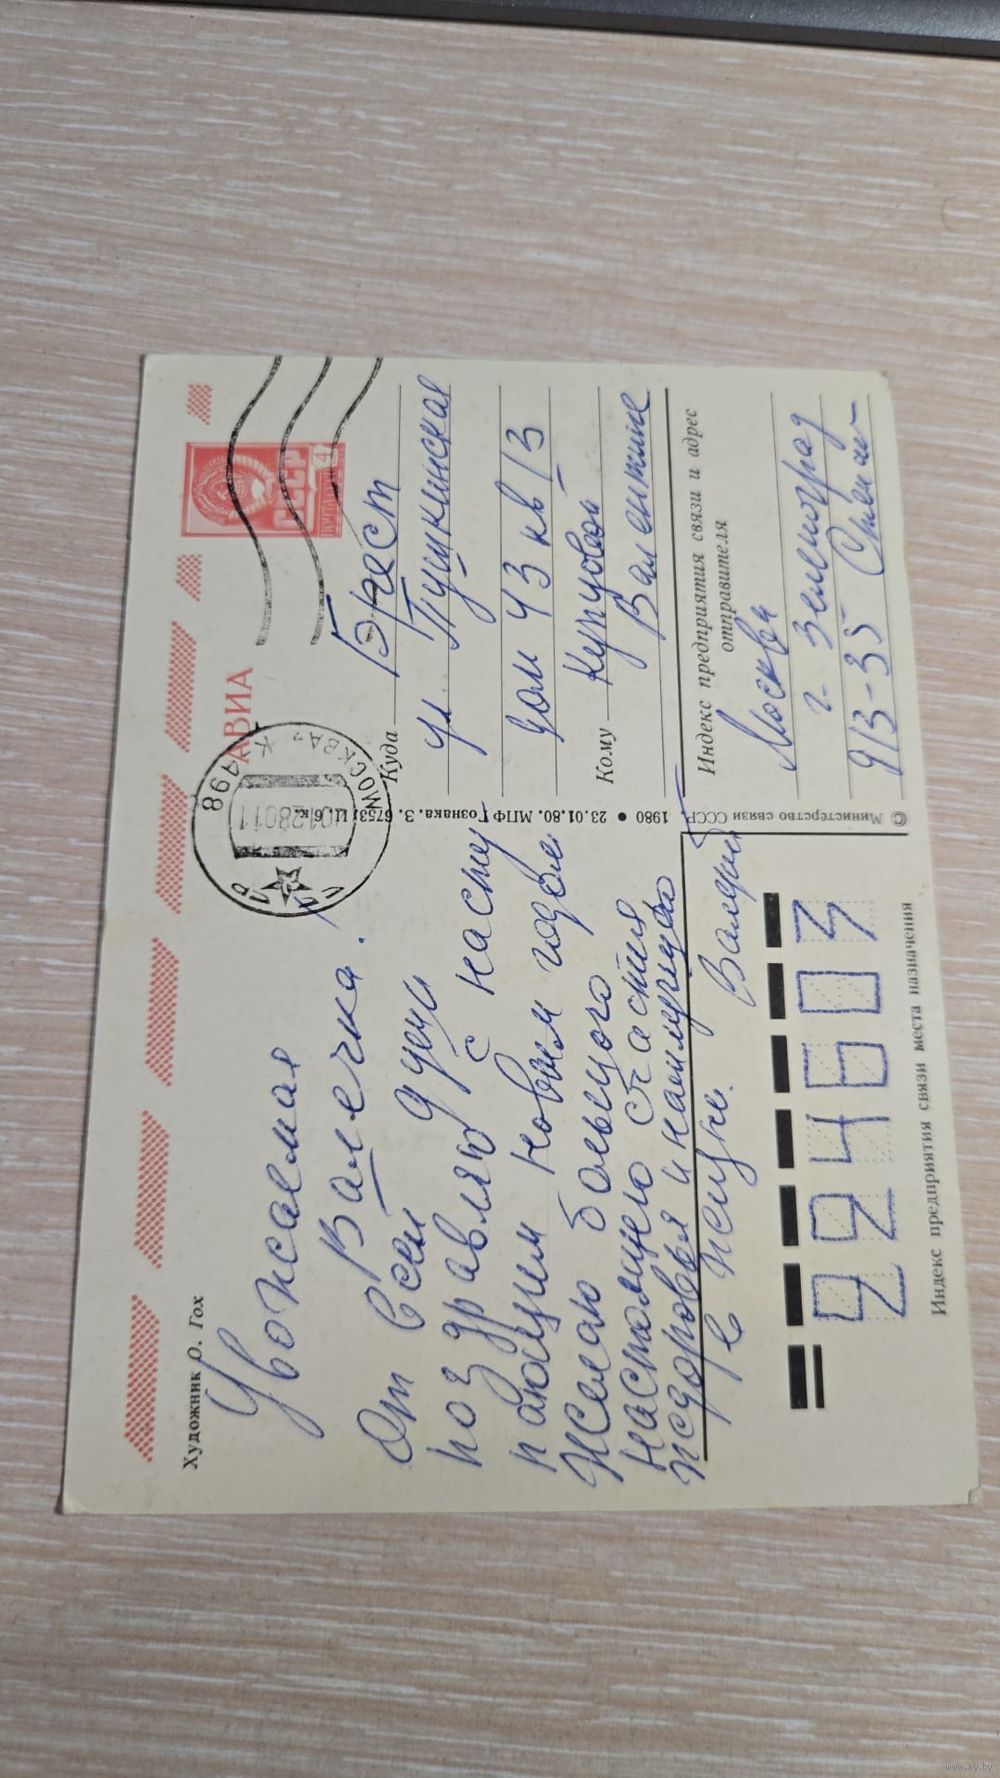 Художник О. Гох
АВИА
СССР
ПОЧТА
4
МОСКВА
Уважаемая
Валечка!
От всей души
поздравляю с насту
пающим Новым годом.
Желаю большого
настоящего счастья
здоровья и наилучшего
в жизни. Валерий
Куда Брест
ул. Пушкинская
дом 43 кв 13
Кому Курцовой
Валентине
Индекс предприятия связи и адрес
отправителя
Москва
г. Зеленоград
913-35
© Министерство связи СССР. 1980 • 23.01.80. МПФ Гознака. З. 6753. Ц. 6 к.
224607
Индекс предприятия связи места назначения
www.ay.by